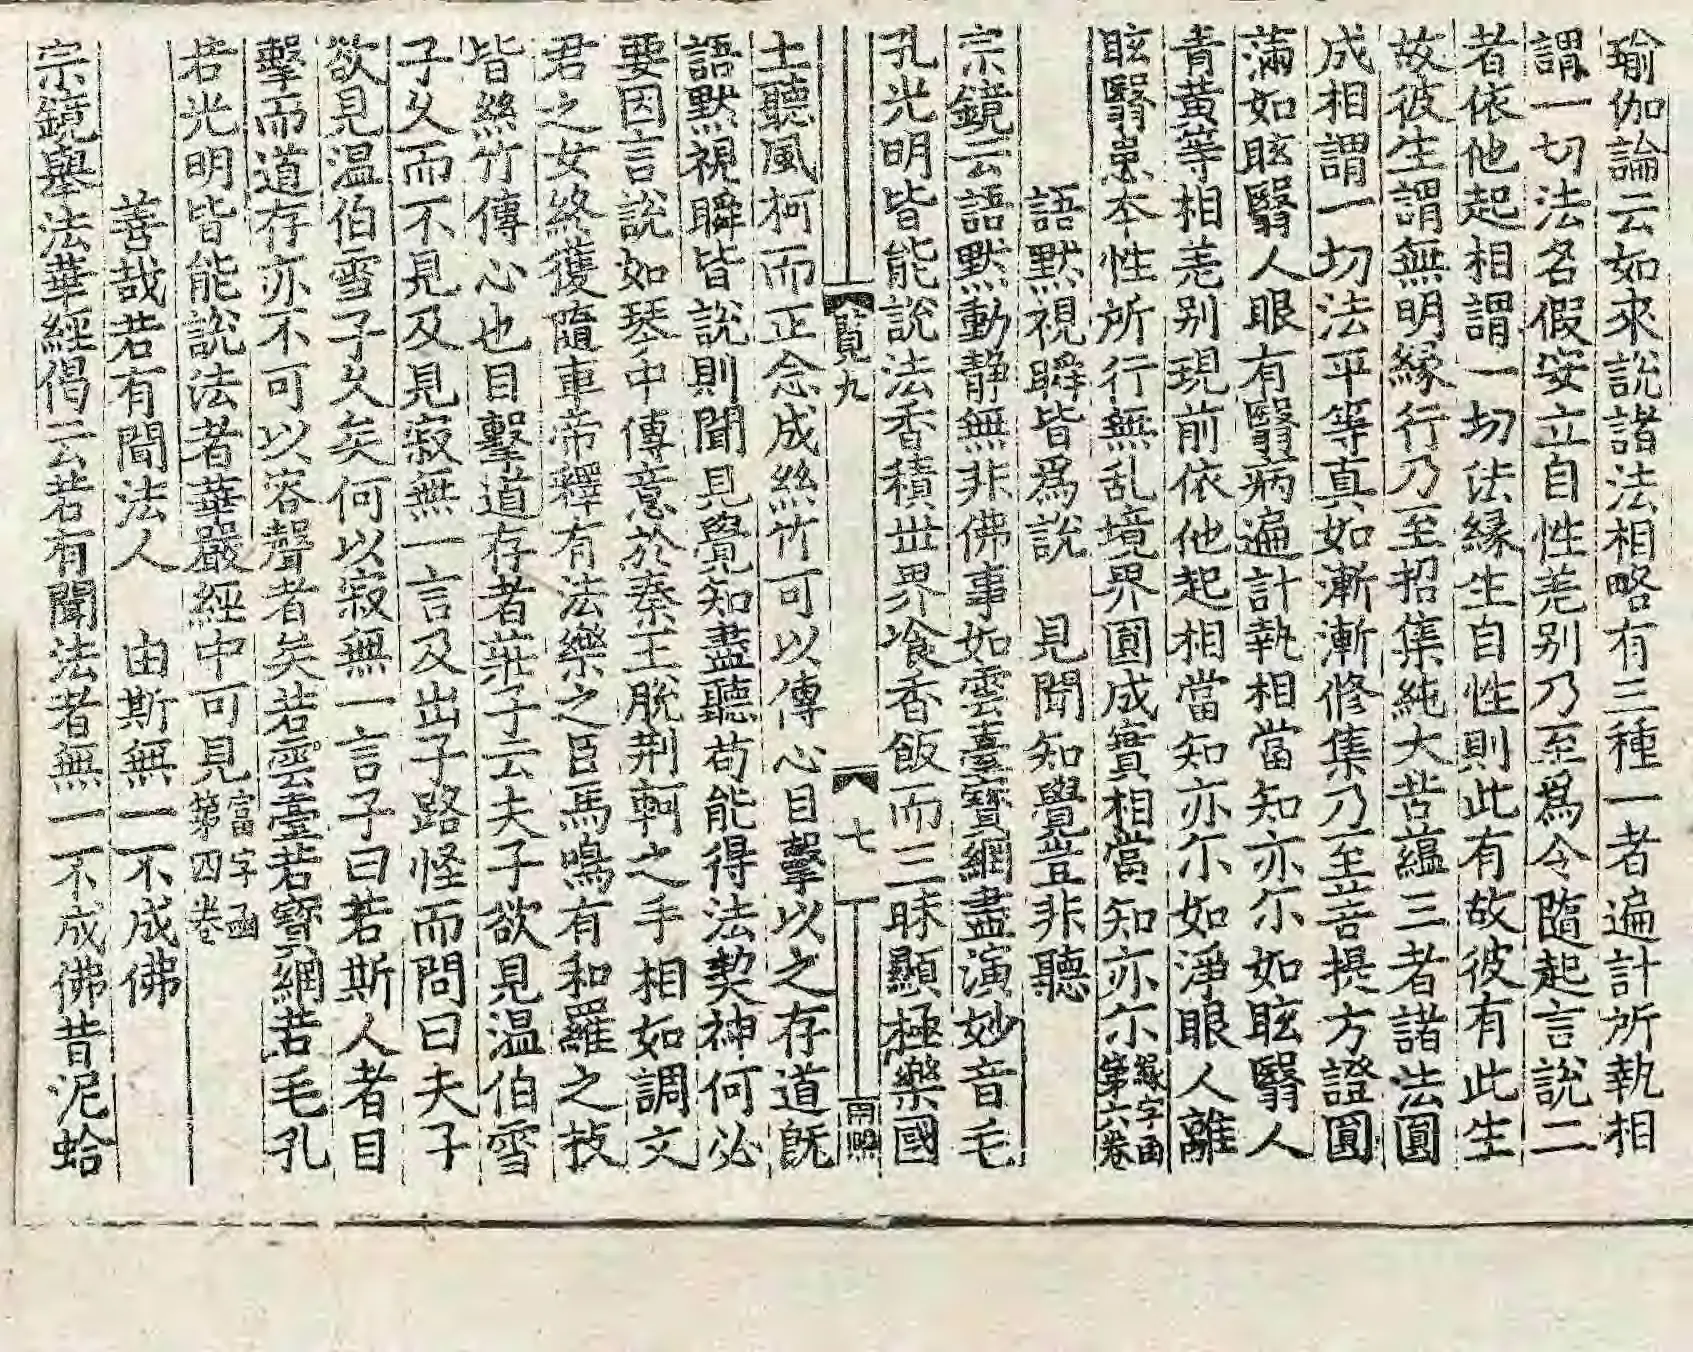 瑜伽論云如來說諸法相略有三種一者遍計所執相
謂一切法名假安立自性差别乃至爲令隨起言說二
者依他起相謂一切法緣生自性則此有故彼有此生
故彼生謂無明緣行乃至招集純大苦蘊三者諸法圓
成相謂一切法平等真如漸漸修集乃至菩提方證圓
滿如眩翳人眼有翳病遍計執相當知亦尒如眩翳人
青黃等相差别現前依他起相當知亦尒如淨眼人離
眩翳患本性所行無乱境界圓成實相當知亦尒緣字函第六卷
語默視瞬皆爲說　見聞知覺豈非聽
宗鏡云語默動靜無非佛事如雲臺寶網盡演妙音毛
孔光明皆能說法香積世界飡香飯而三昧顯極樂國
覧九　七
土聽風柯而正念成絲竹可以傳心目擊以之存道旣
語默視瞬皆說則聞見覺知盡聽苟能得法契神何必
要因言說如琴中傳意於秦王脫荆軻之手相如調文
君之女終獲隨車帝釋有法樂之臣馬鳴有和羅之技
皆絲竹傳心也目擊道存者莊子云夫子欲見温伯雪
子久而不見及見寂無一言及出子路怪而問曰夫子
欲見温伯雪子久矣何以寂無一言子曰若斯人者目
擊而道存亦不可以容聲者矣若雲臺若寶網若毛孔
若光明皆能說法者華嚴經中可見富字函第四卷
善哉若有聞法人　由斯無一不成佛
宗鏡擧法華經偈云若有聞法者無一不成佛昔泥蛤